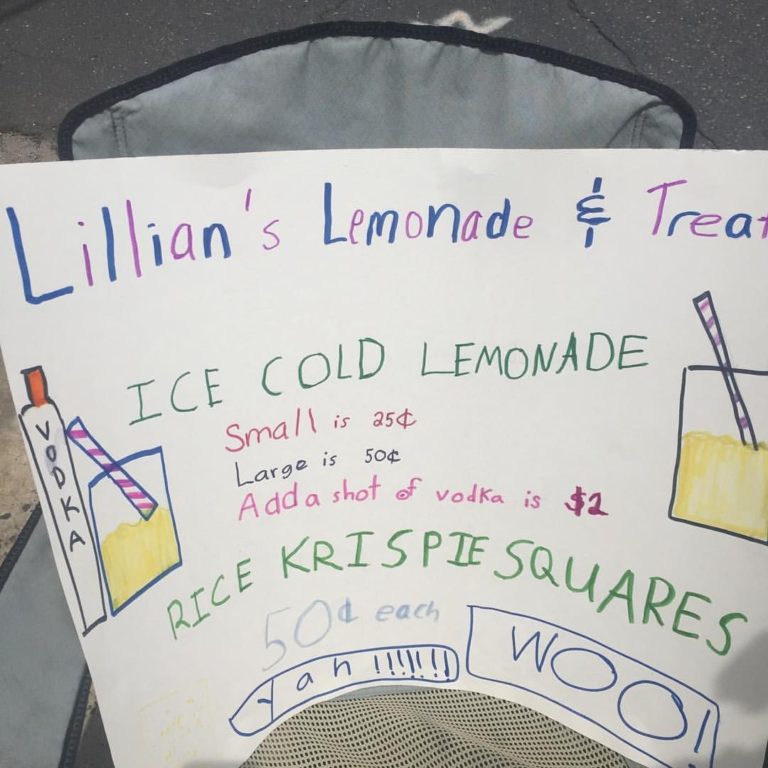 Lillian's Lemonade & Treat
ICE COLD LEMONADE
Small is 25¢
Large is 50¢
Add a shot of vodka is $2
VODKA
RICE KRISPIE SQUARES
50¢ each
Yah !!!!!!!
WOO!